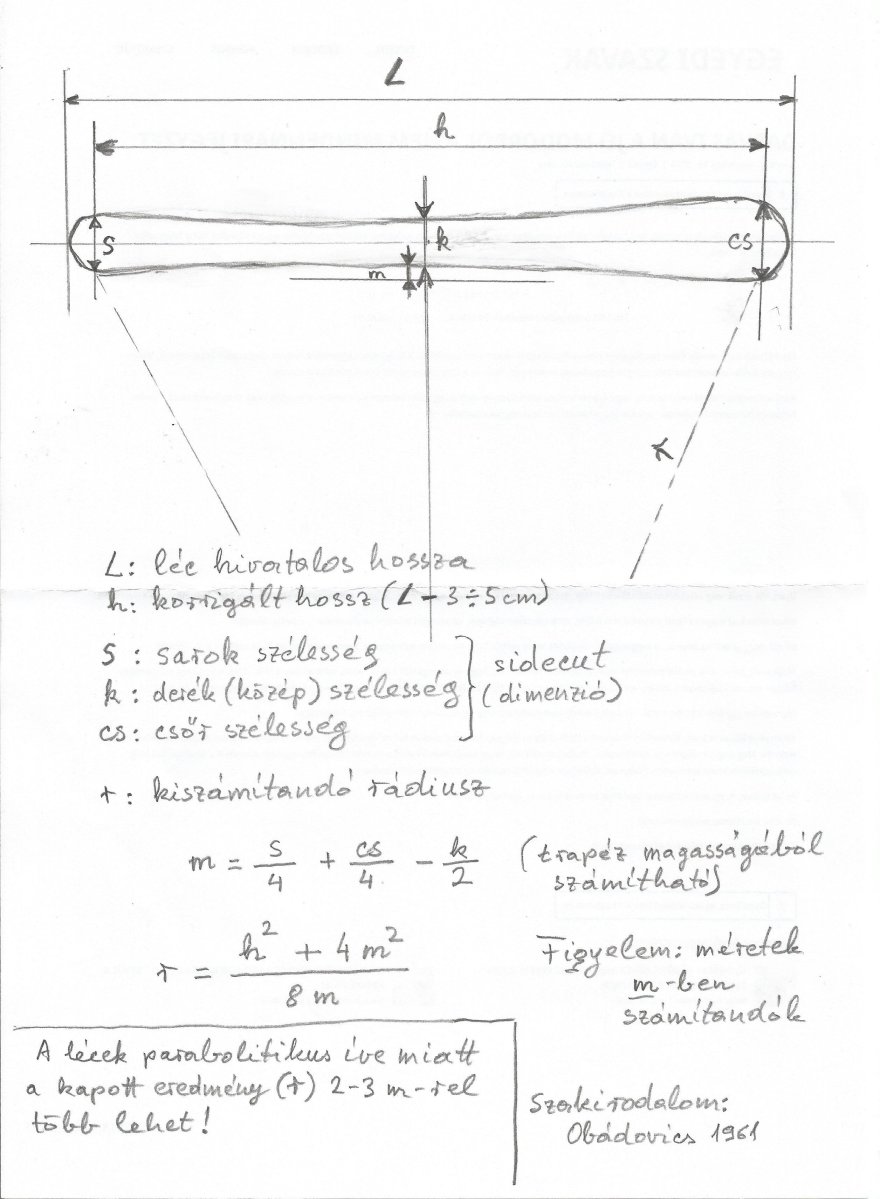 L
h
S
k
cs
m
r
L: léc hivatalos hossza
h: korrigált hossz (L - 3÷5cm)
S : sarok szélesség
k : derék (közép) szélesség
cs : csőr szélesség
sidecut
(dimenzió)
r : kiszámítandó rádiusz
m = s/4 + cs/4 - k/2
(trapéz magasságából
számítható)
r = (h² + 4m²)/(8m)
Figyelem: méretek
m-ben
számítandók
A lécek parabolitikus íve miatt
a kapott eredmény (r) 2-3 m-rel
több lehet!
Szakirodalom:
Obádovics 1961